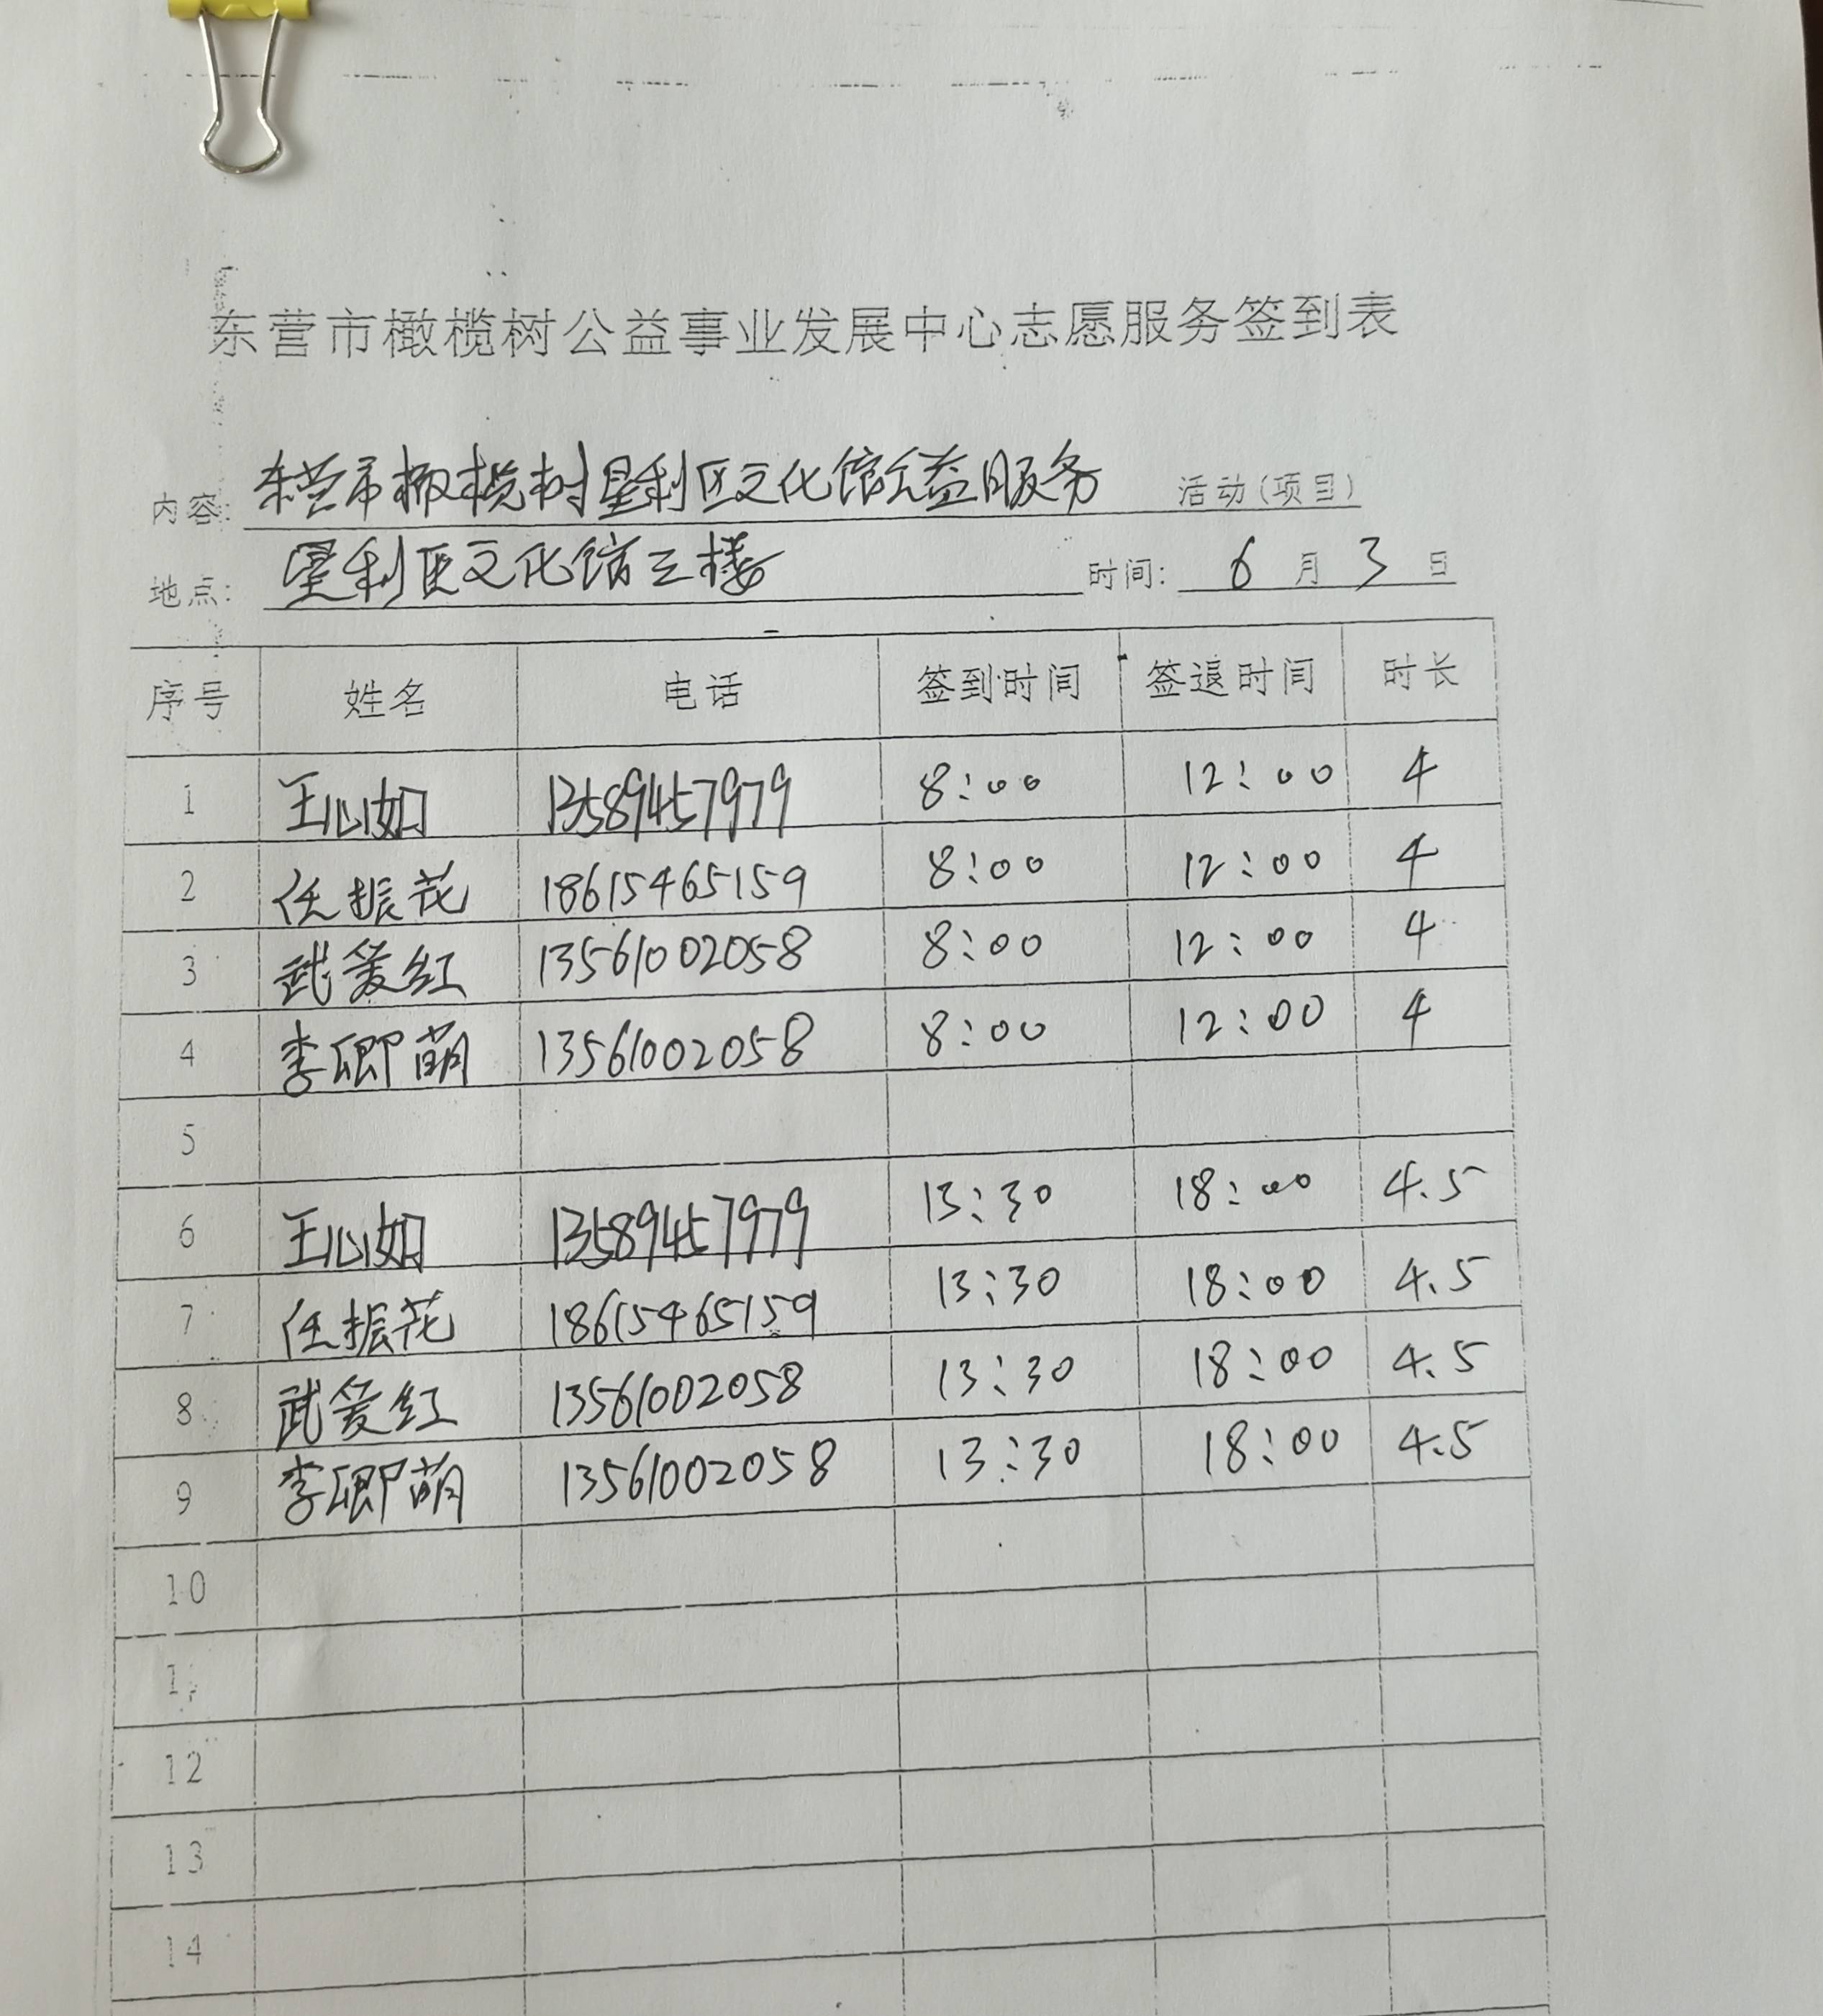 东营市橄榄树公益事业发展中心志愿服务签到表
内容: 东营市橄榄树垦利区文化馆公益服务 活动(项目)
地点: 垦利区文化馆三楼 时间: 6 月 3 日
序号 姓名 电话 签到时间 签退时间 时长
1 王心如 13589457979 8:00 12:00 4
2 任振花 18615465159 8:00 12:00 4
3 武爱红 13561002058 8:00 12:00 4
4 李卿萌 13561002058 8:00 12:00 4
5
6 王心如 13589457979 13:30 18:00 4.5
7 任振花 18615465159 13:30 18:00 4.5
8 武爱红 13561002058 13:30 18:00 4.5
9 李卿萌 13561002058 13:30 18:00 4.5
10
12
13
14